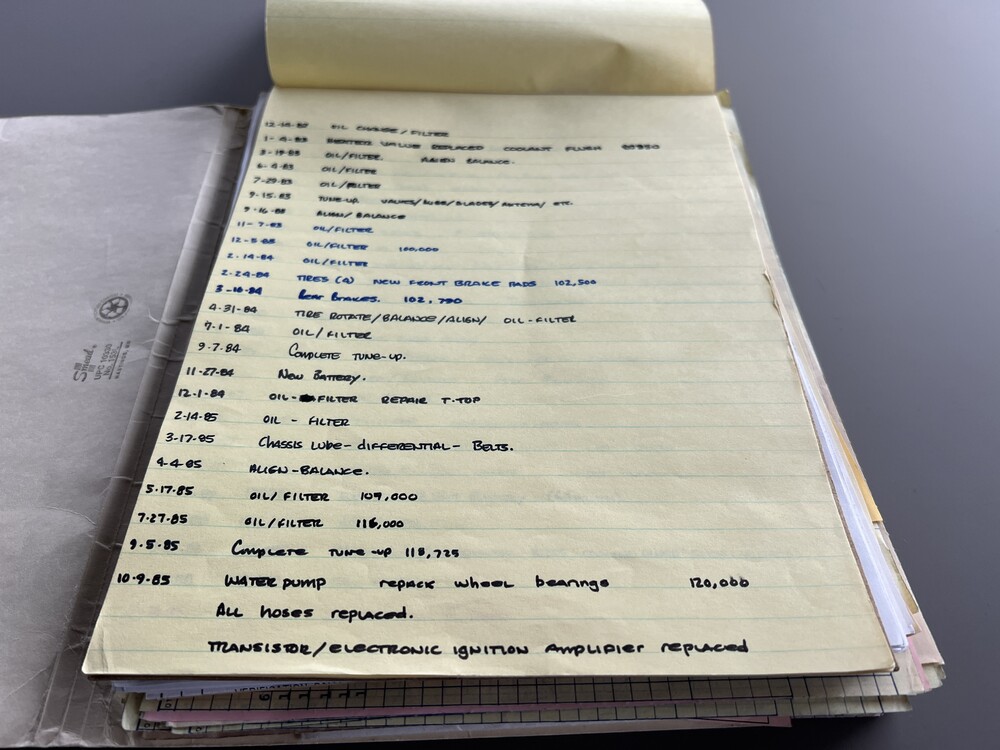 12-14-82 OIL CHANGE/FILTER
1-4-83 HEATER VALVE REPLACED COOLANT FLUSH
3-19-83 OIL/FILTER ALIGN BALANCE.
6-4-83 OIL/FILTER
7-29-83 OIL/FILTER
9-15-83 TUNE-UP VALVES/LUBE/BLADES/ANTENA/ ETC.
9-16-83 ALIGN/BALANCE
11-7-83 OIL/FILTER
12-5-83 OIL/FILTER 100,000
2-14-84 OIL/FILTER
2-24-84 TIRES (4) NEW FRONT BRAKE PADS 102,500
3-10-84 Rear Brakes. 102,790
4-31-84 TIRE ROTATE/BALANCE/ALIGN/ OIL-FILTER
7-1-84 OIL/FILTER
9-7-84 COMPLETE TUNE-UP.
11-27-84 NEW BATTERY.
12-1-84 OIL-FILTER REPAIR T-TOP
2-14-85 OIL - FILTER
3-17-85 CHASSIS LUBE-DIFFERENTIAL- BELTS.
4-4-85 ALIGN-BALANCE.
5-17-85 OIL/FILTER 109,000
7-27-85 OIL/FILTER 116,000
9-5-85 Complete TUNE-UP 118,725
10-9-85 WATER PUMP repack wheel bearings 120,000
ALL hoses replaced.
TRANSISTOR/ELECTRONIC IGNITION AMPLIFIER replaced
Smead
UPC 10330
HASTINGS, MN